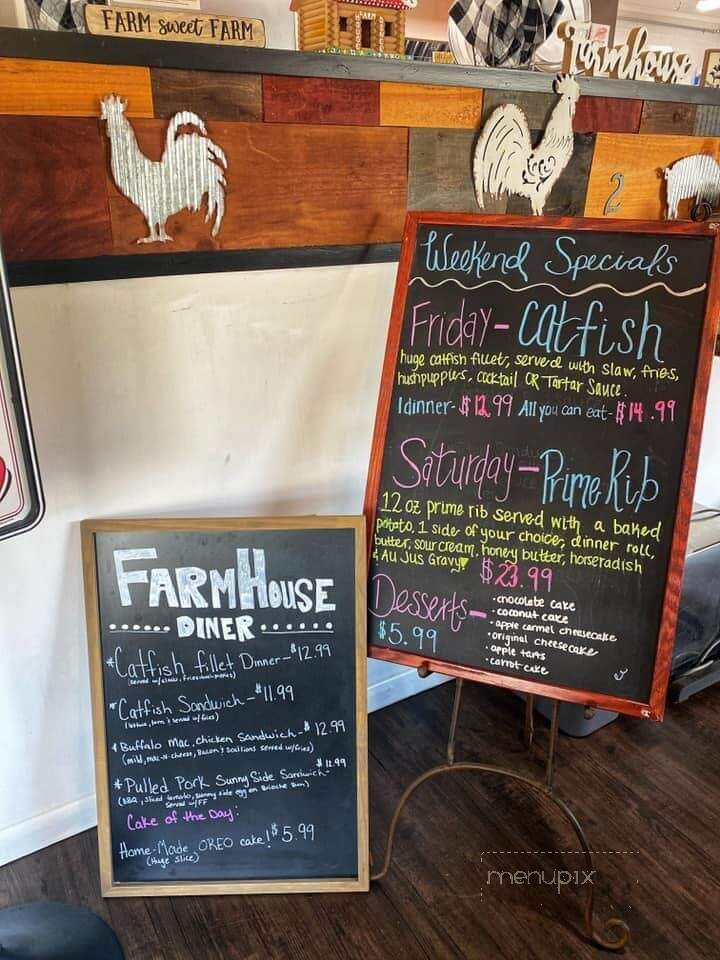 FARM sweet FARM
FARM
Farmhouse
2
Weekend Specials
Friday - Catfish
huge catfish fillet, served with slaw, fries,
hushpuppies, cocktail OR Tartar Sauce.
1 dinner - $12.99 All you can eat - $14.99
Saturday - Prime Rib
12 oz prime rib served with a baked
potato, 1 side of your choice, dinner roll,
butter, sour cream, honey butter, horseradish
& Au Jus Gravy
$23.99
Desserts -
$5.99
• chocolate cake
• coconut cake
• apple carmel cheesecake
• original cheesecake
• apple tarts
• carrot cake
FARMHOUSE
DINER
*Catfish fillet Dinner - $12.99
*Catfish Sandwich - $11.99
* Buffalo Mac. chicken Sandwich - $12.99
(mild, mac-n-cheese, Bacon & Scallions served w/fries)
* Pulled Pork Sunny Side Sandwich -
(BBQ, Sliced tomato, Sunny side egg on Brioche Bun)
served w/FF
Cake of the Day:
Home-Made OREO cake! $5.99
(Huge Slice)
menupix